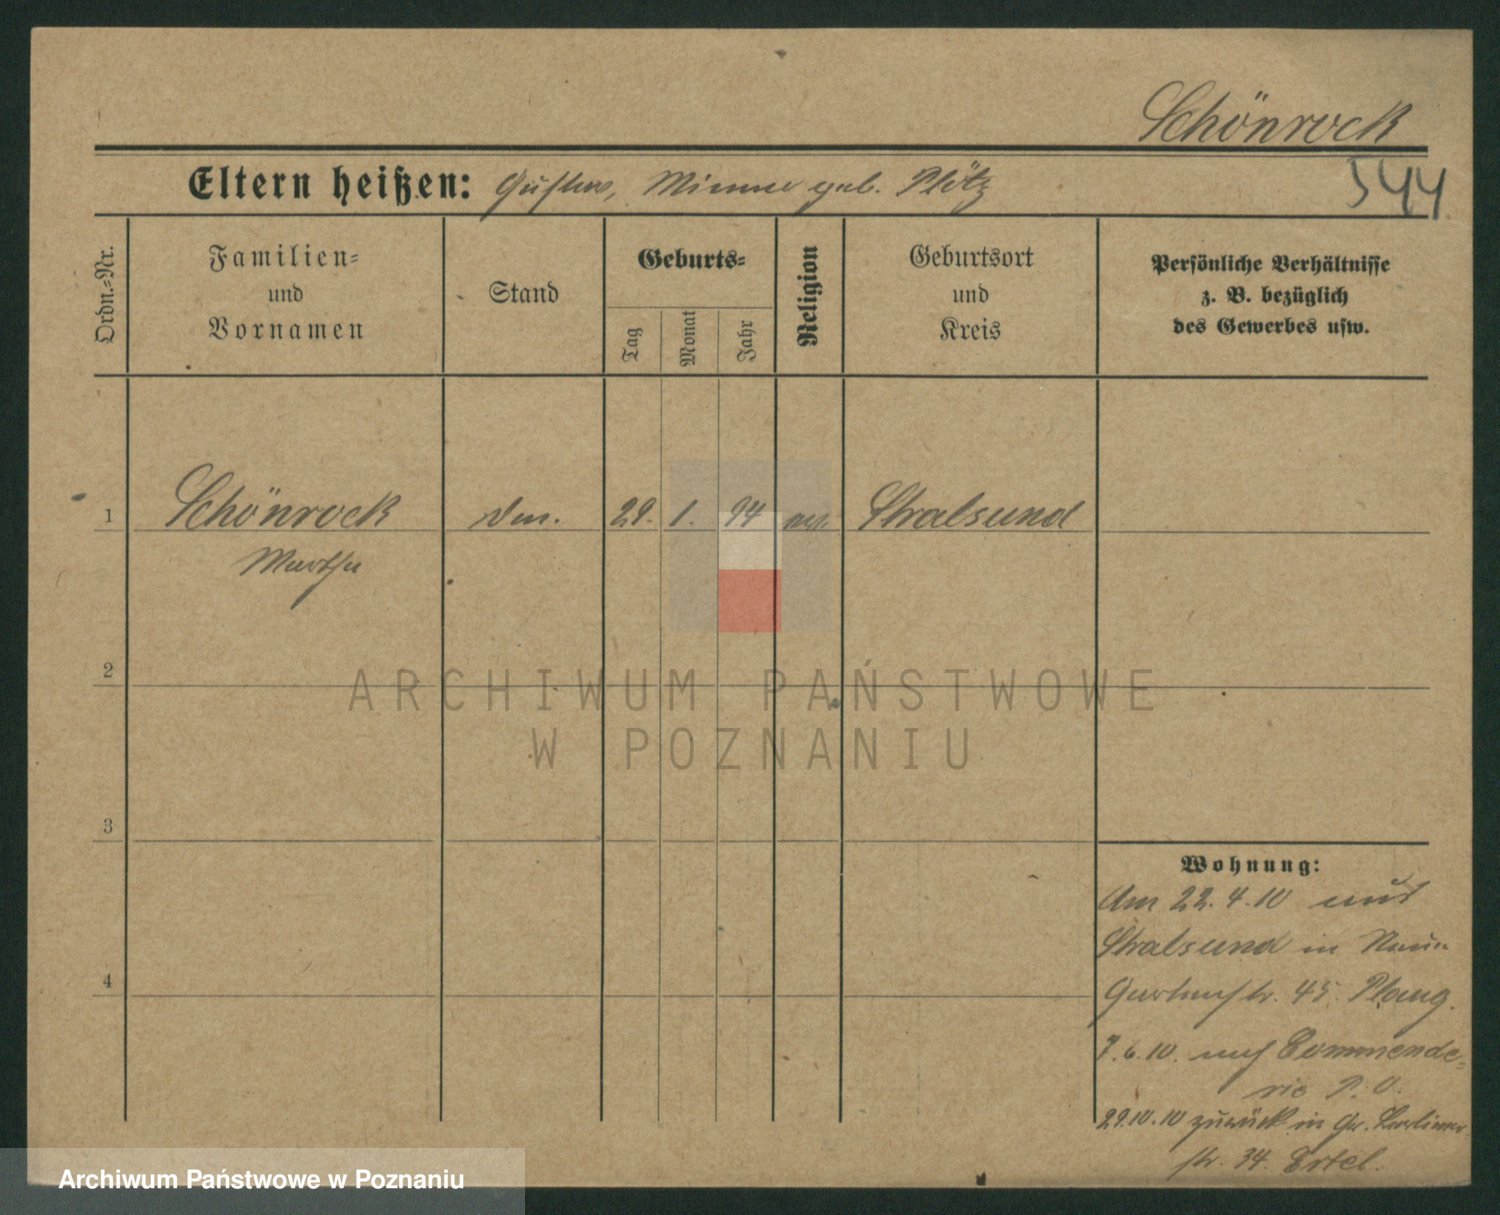 Schönrock
Eltern heißen: Gustav, Minna geb. Plötz
544
Ordn.-Nr.
Familien-
und
Vornamen
Stand
Geburts-
Tag
Monat
Jahr
Religion
Geburtsort
und
Kreis
Persönliche Verhältnisse
z. B. bezüglich
des Gewerbes usw.
1 Schönrock 29. 1. 94 Stralsund
Martha
2
ARCHIWUM PAŃSTWOWE
W POZNANIU
3
Wohnung:
Am 22.4.10 aus
Stralsund in
4
Gartenstr. 45.
7.6.10. auf Commende-
rie P. O.
29.10.10 zurück in Gr. Berliner
str. 34. Ertel.
Archiwum Państwowe w Poznaniu